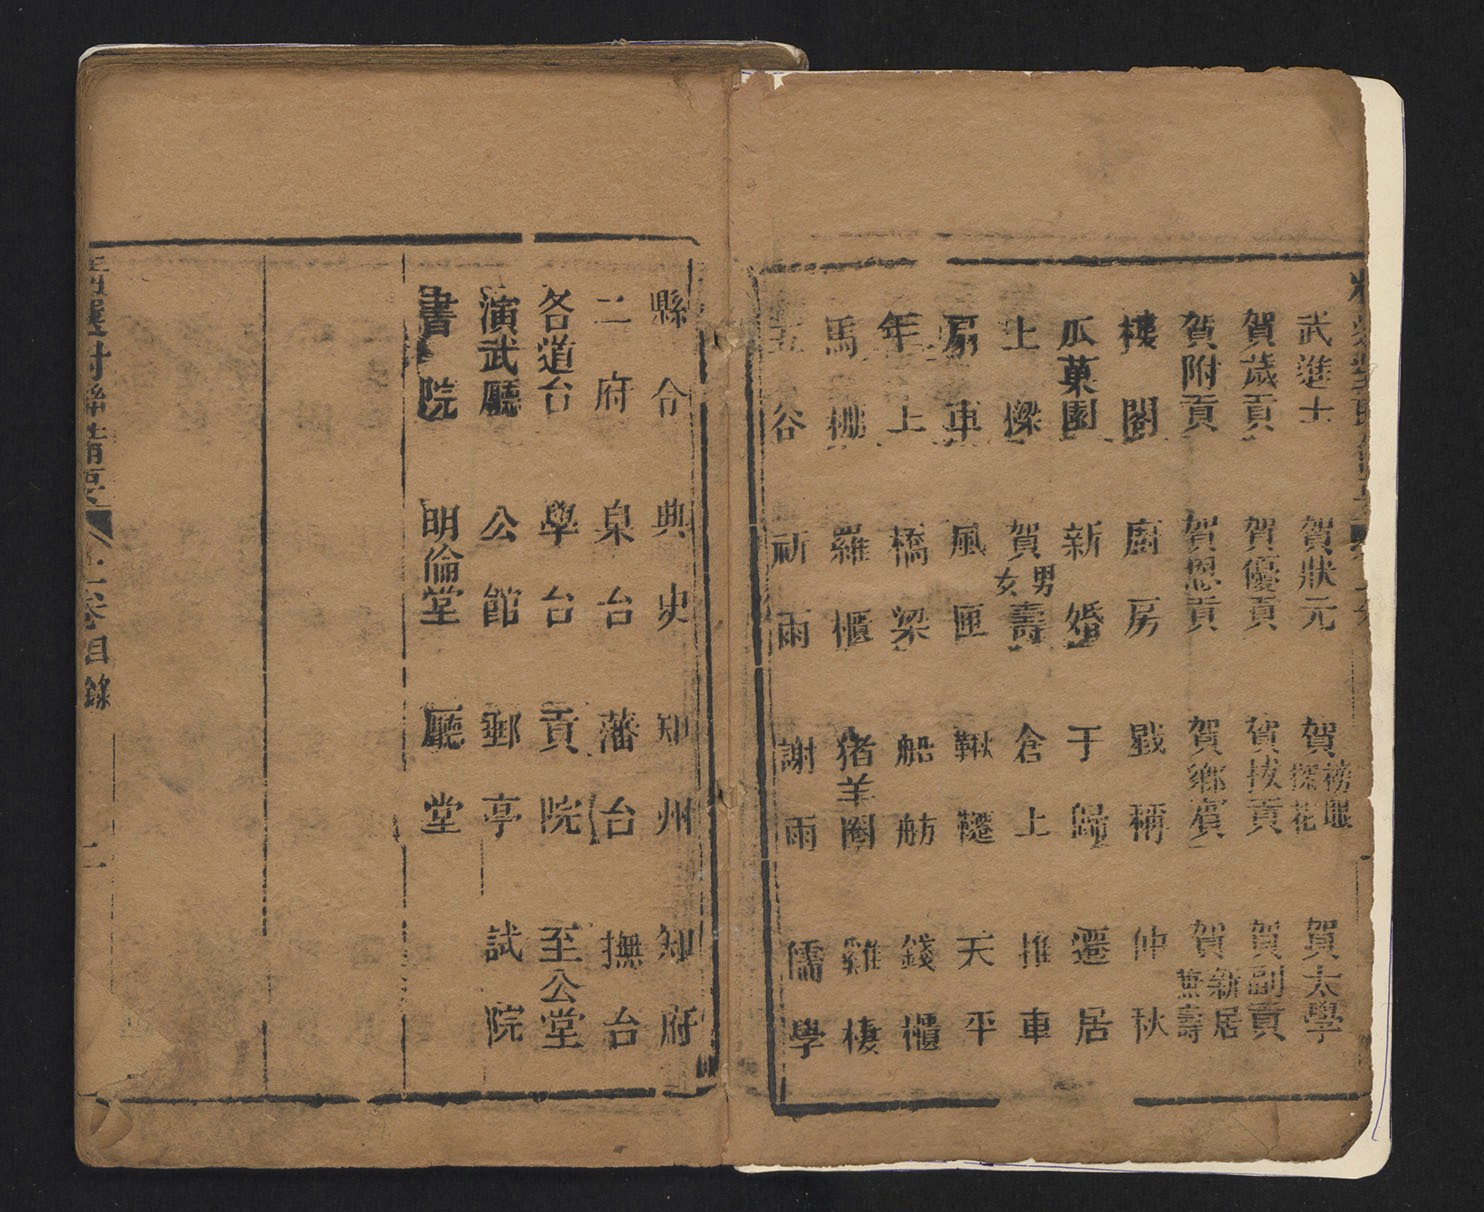 武進士 賀狀元 賀榜眼探花 賀太學
賀歲貢 賀優貢 賀拔貢 賀副貢
賀附貢 賀恩貢 賀鄉賓 賀新居蕪壽
樓閣 廚房 戥稱 仲秋
瓜菓園 新婚 于歸 遷居
上樑 賀男女壽 倉上 推車
扇車 風匣 鞦韆 天平
年上 橋梁 船舫 錢櫃
馬棚 羅櫃 猪羊圈 雞棲
五谷 祈雨 謝雨 儒學
縣令 典史 知州 知府
二府 臬台 藩台 撫台
各道台 學台 貢院 至公堂
演武廳 公館 郵亭 試院
書院 明倫堂 廳堂
對聯精要 上卷目錄 二